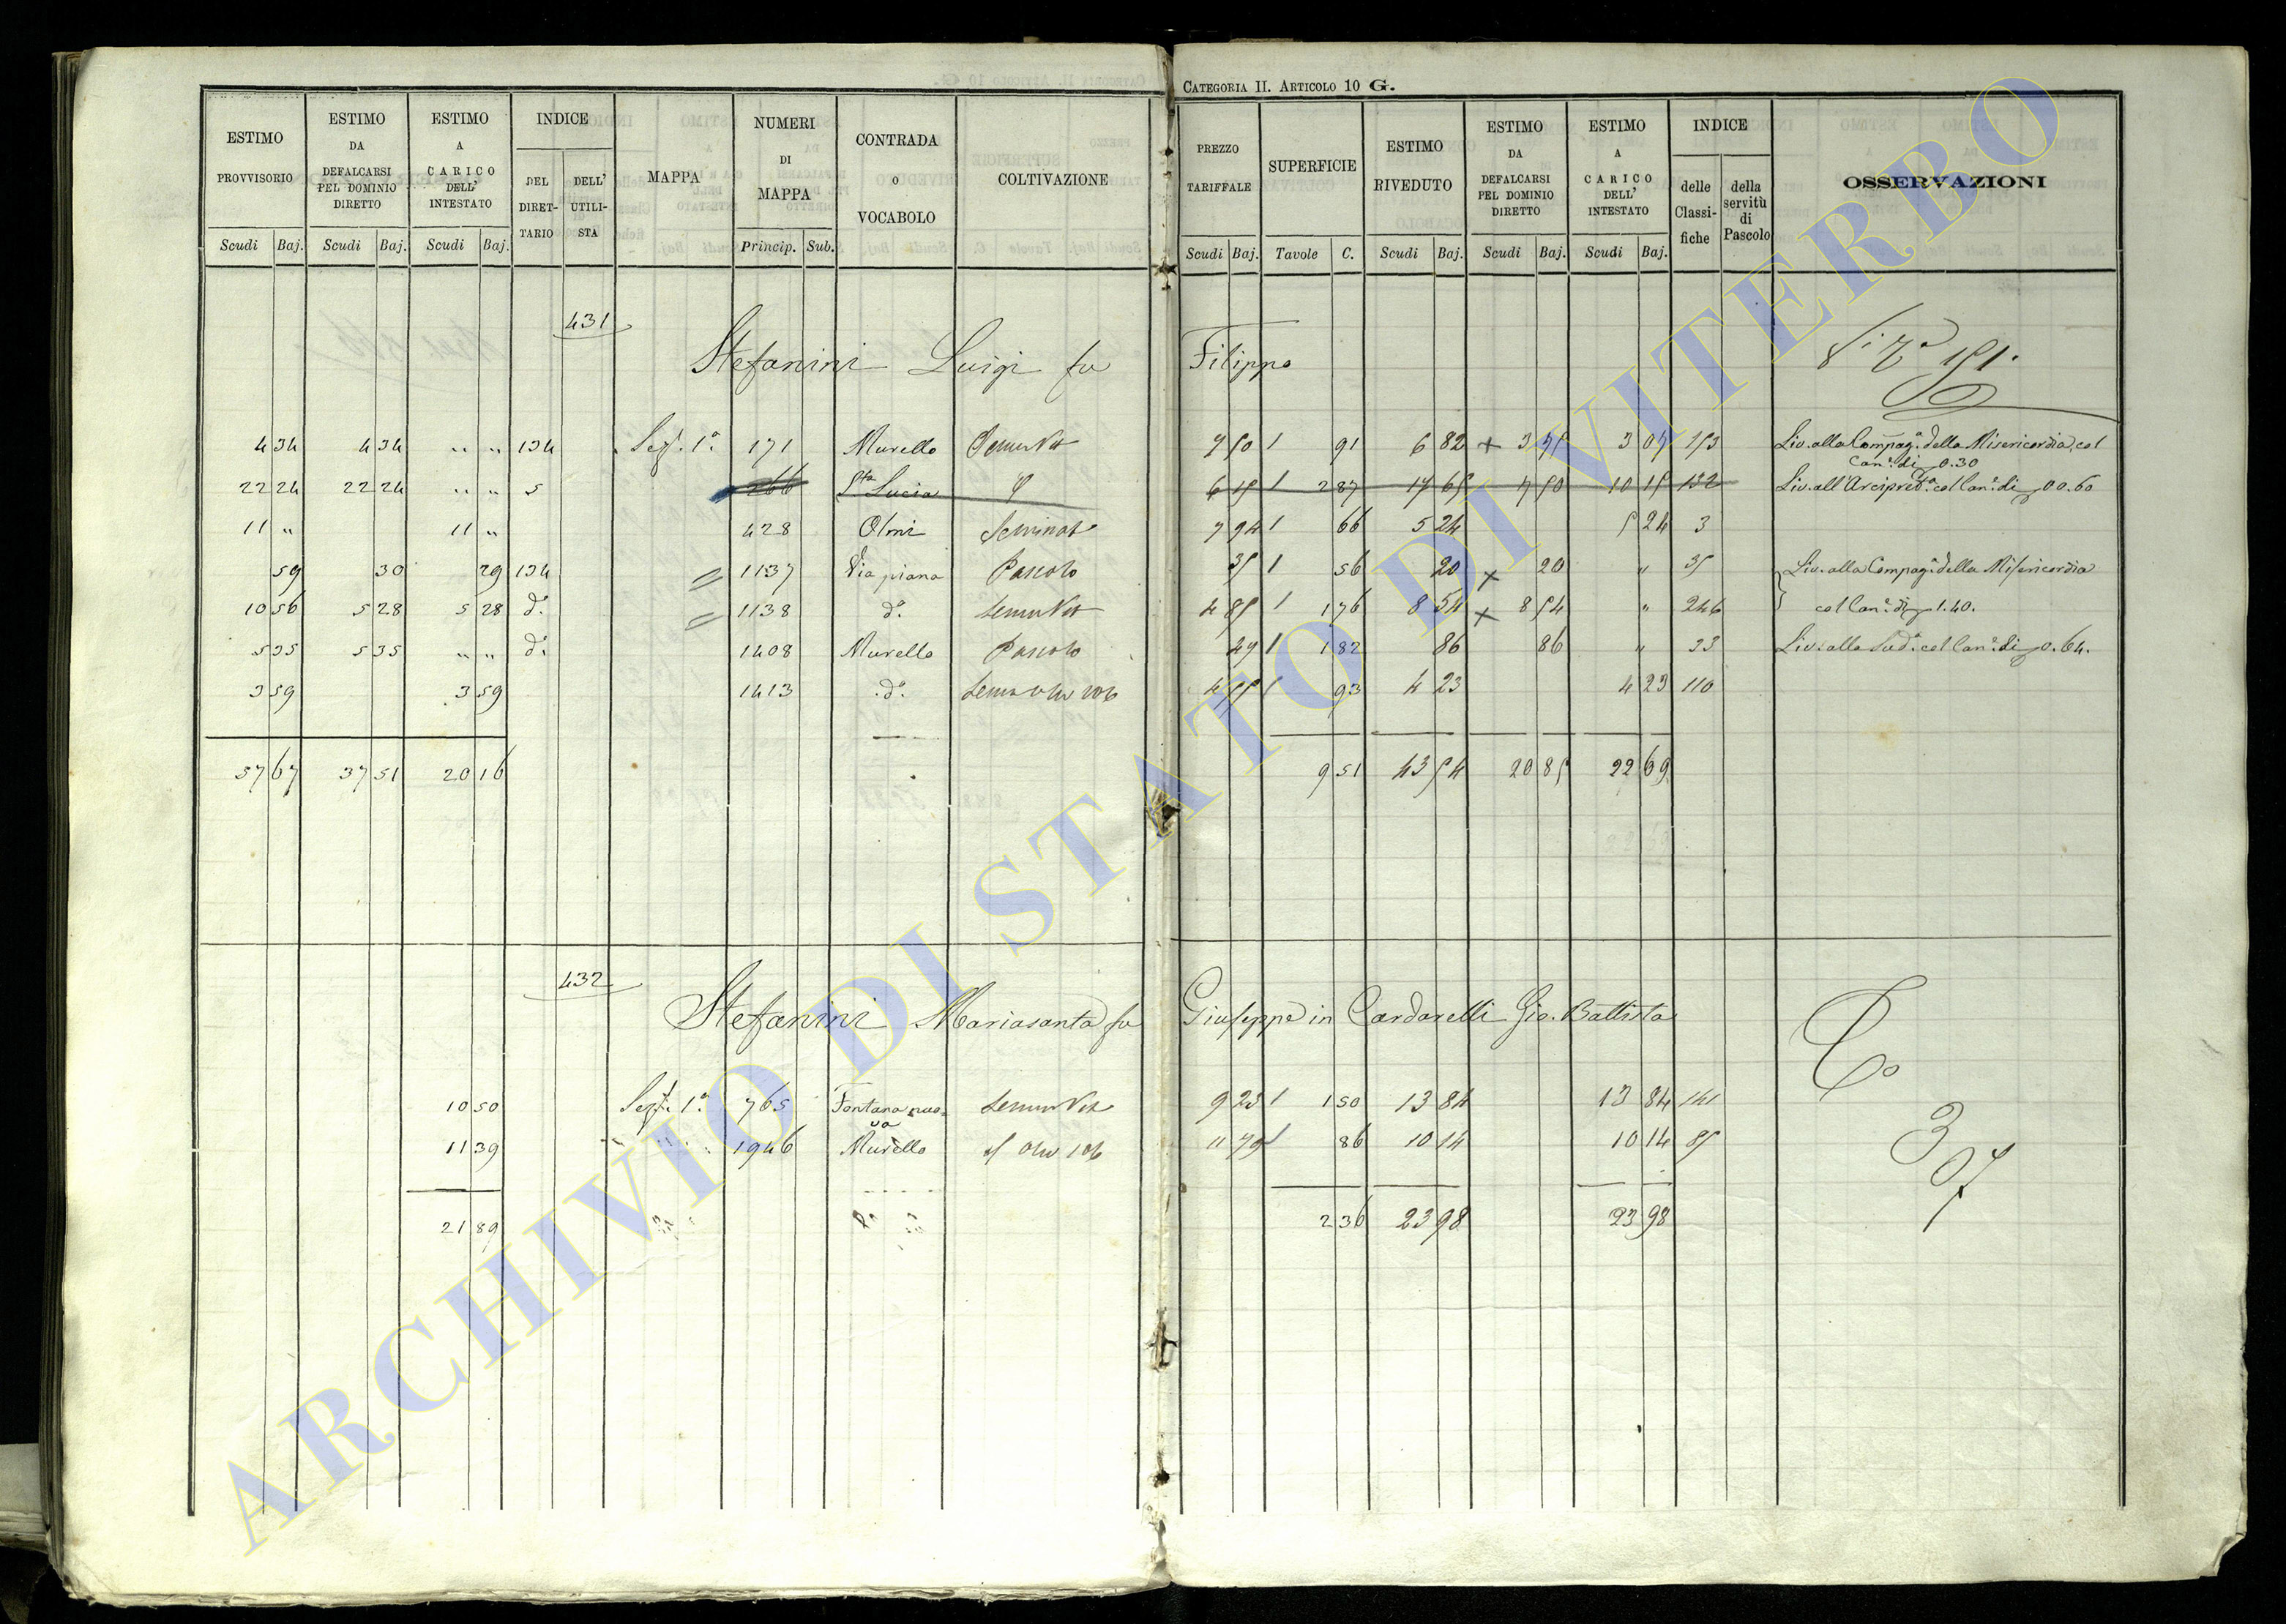 CATEGORIA II. ARTICOLO 10 G.
ESTIMO PROVVISORIO Scudi Baj.
ESTIMO DA DEFALCARSI PEL DOMINIO DIRETTO Scudi Baj.
ESTIMO A CARICO DELL' INTESTATO Scudi Baj.
INDICE DEL DIRET-TARIO DELL' UTILI-STA
MAPPA
NUMERI DI MAPPA Princip. Sub.
CONTRADA o VOCABOLO
COLTIVAZIONE
PREZZO TARIFFALE Scudi Baj.
SUPERFICIE Tavole C.
ESTIMO RIVEDUTO Scudi Baj.
ESTIMO DA DEFALCARSI PEL DOMINIO DIRETTO Scudi Baj.
ESTIMO A CARICO DELL' INTESTATO Scudi Baj.
INDICE delle Classi-fiche della servitù di Pascolo
OSSERVAZIONI
431
Stefanini Luigi fu Filippo
4 34 4 34 " " 134 Sez. 1ª 171 Murello 7 50 91 6 82 + 3 75 3 07 153 Liv. alla Compagª della Misericordia col Canº di 0.30
22 24 22 24 " " 5 266 Sta Lucia 6 15 2 87 17 65 7 50 10 15 132 Liv. all'Arcipretª col Canº di 00.60
11 " 11 " 428 Olmi Seminat 7 94 66 5 24 5 24 3
59 30 29 134 1137 Via piana Pascolo 35 56 20 + 20 " 35 Liv. alla Compagª della Misericordia
10 56 5 28 5 28 dº 1138 dº 4 85 1 76 8 54 + 8 54 " 246 col Canº di 1.40.
5 35 5 35 " " dº 1408 Murello Pascolo 47 1 82 86 86 " 33 Liv. alla Sudª col Canº di 0.64.
3 59 3 59 1413 dº 4 55 93 4 23 4 23 110
57 67 37 51 20 16 9 51 43 54 20 85 22 69
432
Stefanini Mariasanta fu Giuseppe in Cardarelli Gio. Battista
10 50 Sez. 1ª 765 Fontana nuo-
va 9 23 1 50 13 84 13 84 141
11 39 1946 Murello 11 79 86 10 14 10 14 85
21 89 2 36 23 98 23 98
307
ARCHIVIO DI STATO DI VITERBO